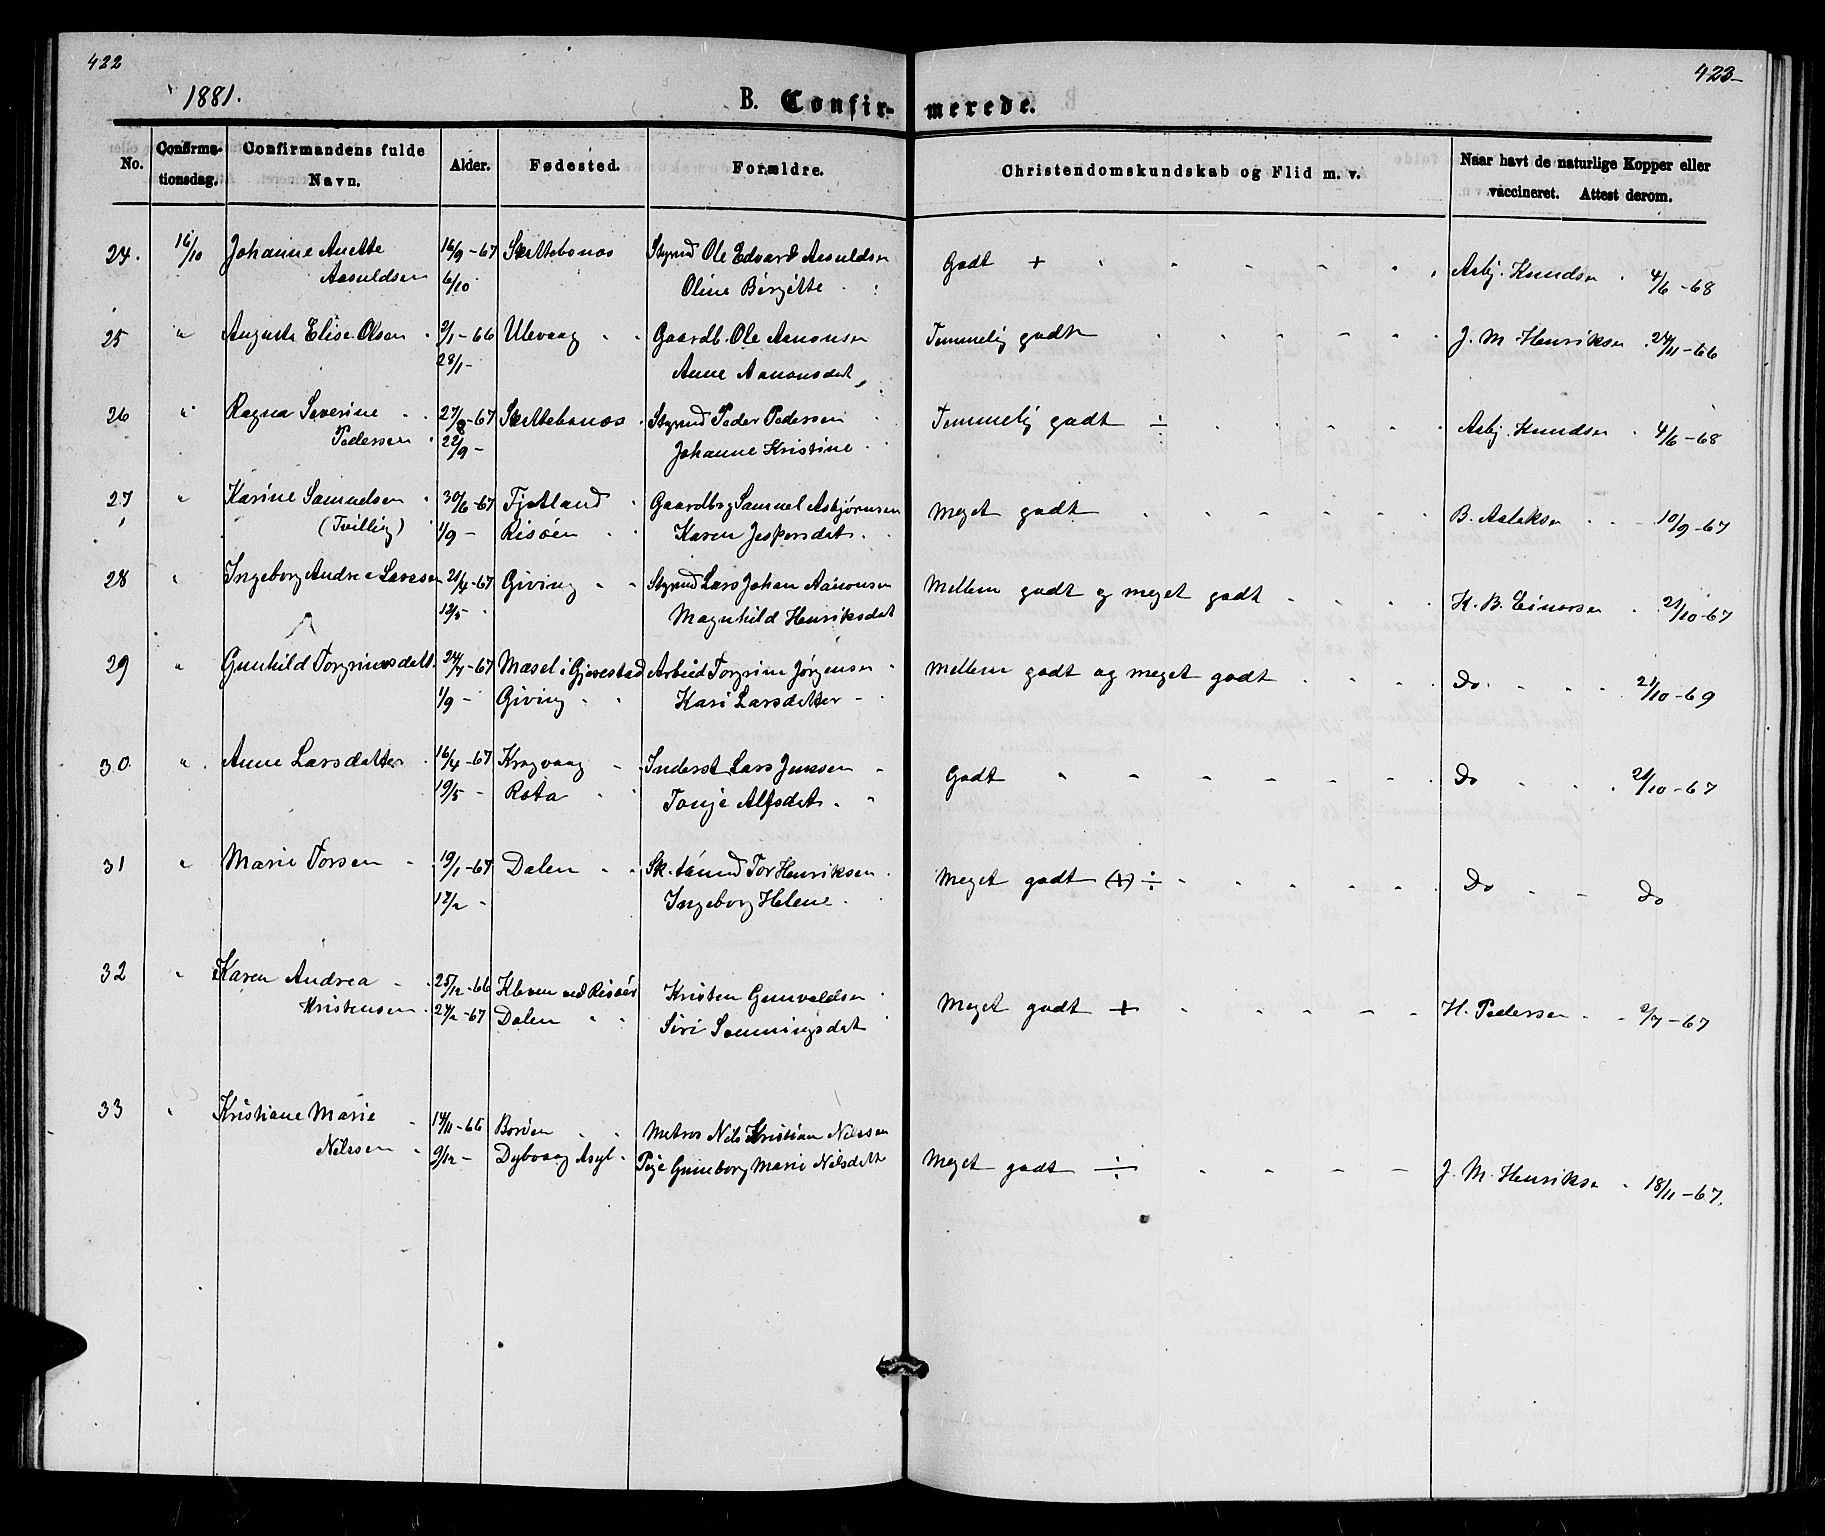 422
1881.
B. Confir-
merede.
423
No.
Confirma-
tionsdag.
Confirmandens fulde
Navn.
Alder.
Fødested.
Forældre.
Christendomskundskab og Flid m. v.
Naar havt de naturlige Kopper eller
vaccineret. Attest derom.
24. 16/10 Johanne Anette 16/9-67 Skuttebonas Stgmd Ole Edvard Aasuldsen Godt + Asbj. Knudsen 4/6-68
Aasuldsen 6/10 Oline Birgitte
25 " Augusta Elise Olsen 2/1-66 Ulevaag Gaardb. Ole Aanonsen Temmelig godt J. M. Henriksen 24/11-66
28/1- Anne Aanonsdat
26 " Ragna Severine 27/8-67 Skuttebonas Stgmd Peder Pedersen Temmelig godt ÷ Asbj. Knudsen 4/6-68
Pedersen 22/9- Johanne Kristine
27 " Karine Samuelsen 30/6-67 Fjotland Gaardbrg Samuel Asbjørnsen Meget godt B. Aslaksen 10/9-67
(Tvilling) 1/9- Risøen Karen Jespersdat
28 " Ingeborg Andrea Larsen 21/4-67 Giving Stgmd Lars Johan Aanonsen Mellem godt og meget godt K. B. Einarsen 21/10-67
12/5 Magnhild Henriksdat
29 " Gunhild Torgrimsdatt. 24/7-67 Mæsel i Gjerestad Arbeid Torgrim Jørgensen Mellem godt og meget godt Do. 21/10-69
1/9- Giving Kari Larsdatter
30 " Anne Larsdatter 16/4-67 Kragvaag Inderst Lars Jenssen Godt Do 21/10-67
19/5- Rota Tonje Alfsdat
31 " Marie Torsen 19/1-67 Dalen Sk.tømd Tor Henriksen Meget godt (+) ÷ Do Do
17/2- Ingeborg Helene
32 " Karen Andrea 25/12-66 Kleven ved Risøer Kristen Gunvaldsen Meget godt + H. Pedersen 2/7-67
Kristensen 24/2-67 Dalen Siri Sonmingsdat
33 " Kristiane Marie 14/11-66 Borøen Matros Nils Kristian Nilssen Meget godt ÷ J. M. Henriksen 18/11-67.
Nilssen 9/12- Dybvaag Asyl Pige Gunborg Marie Nilsdatt